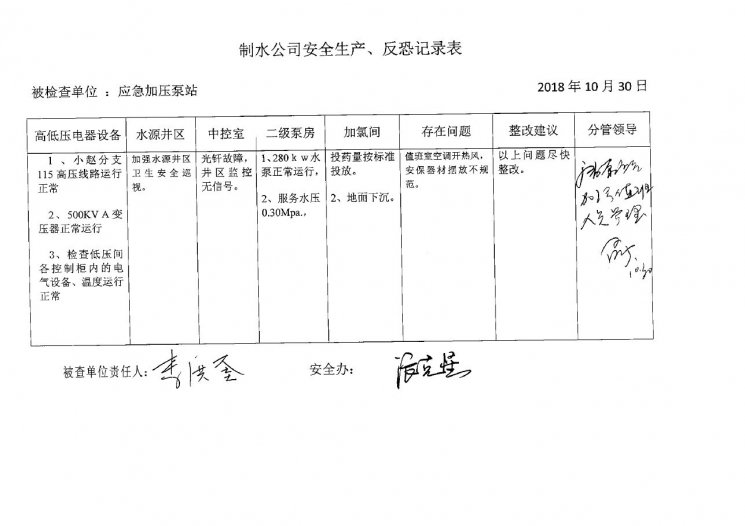 制水公司安全生产、反恐记录表
被检查单位 ：应急加压泵站
2018 年 10 月 30 日
高低压电器设备 水源井区 中控室 二级泵房 加氯间 存在问题 整改建议 分管领导
1 、小赵分支
115 高压线路运行
正常
2、500KV A 变
压器正常运行
3、检查低压间
各控制柜内的电
气设备、温度运行
正常
加强水源井区
卫生安全巡
视。
光钎故障，
井区监控
无信号。
1、280ｋｗ水
泵正常运行，
2、服务水压
0.30Mpa.，
投药量按标准
投放。
2、地面下沉。
值班室空调开热风，
安保器材摆放不规
范。
以上问题尽快
整改。
加强值班
人员管理
10.30
被查单位责任人：李洪奎
安全办：